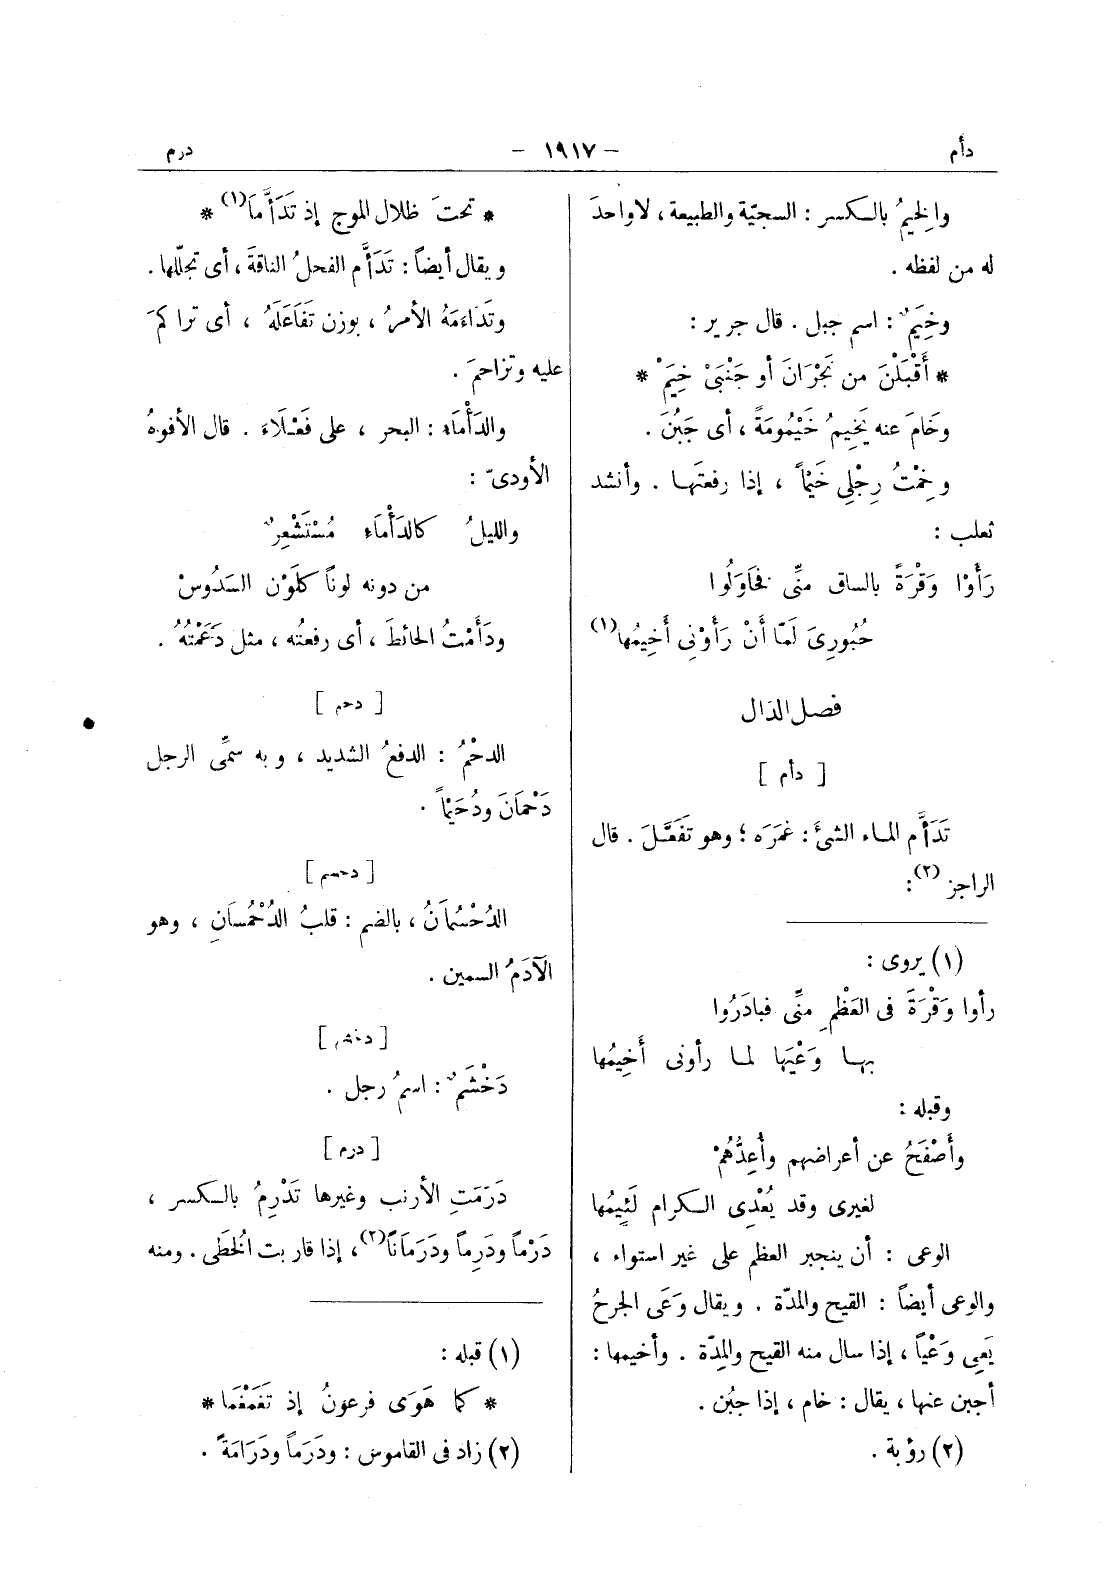 دأم
– ١٩١٧ –
درم
والخِيمُ بالكسر : السجيّة والطبيعة ، لاواحدَ
له من لفظه .
وخِيَمٌ : اسم جبل . قال جرير :
* أَقْبَلْنَ من نَجْرَانَ أو جَنْبَىْ خِيَمْ *
وخَامَ عنه يَخِيمُ خَيْمُومَةً ، أى جَبُنَ .
وخِمْتُ رِجْلِى خَيْماً ، إذا رفعتَها . وأنشد
ثعلب :
رَأَوْا وَقْرَةً بالساق منِّى فحَاوَلُوا
حُبُورِىَ لَمّا أَنْ رَأَوْنِى أَخِيمُها (١)
فصل الدَال
[ دأم ]
تَدَأَّم الماء الشئَ : غمَرَه ؛ وهو تَفَعَّلَ . قال
الراجز (٢) :
(١) يروى :
رأوا وَقْرَةً فى العَظْمِ منِّى فبادَرُوا
بها وَعْيَها لما رأونى أَخِيمُها
وقبله :
وأَصْفَحُ عن أعراضهم وأُعِدُّهُمْ
لغيرى وقد يُعْدِى الكرام لَئِيمُها
الوعى : أن ينجبر العظم على غير استواء ،
والوعى أيضاً : القيح والمدّة . ويقال وَعَى الجرحُ
يَعِى وَعْياً ، إذا سال منه القيح والمِدّة . وأخيمها :
أجبن عنها ، يقال : خام ، إذا جبُن .
(٢) رؤبة .
* تحتَ ظلال الموج إذ تَدَأَّمَا (١) *
ويقال أيضاً : تَدَأَّم الفحلُ الناقةَ ، أى تجلّلها .
وتَدَاءَمَهُ الأمرُ ، بوزن تفَاعَلَهُ ، أى تراكمَ
عليه وتزاحمَ .
والدَأْمَاء : البحر ، على فَعْلَاءَ . قال الأفوهُ
الأودىّ :
والليلُ كالدَأْمَاءِ مُسْتَشْعِرٌ
من دونه لوناً كلَوْن السَدُوسْ
ودَأَمْتُ الحائطَ ، أى رفعتُه ، مثل دَعَمْتُهُ .
[ دحم ]
الدحْمُ : الدفعُ الشديد ، وبه سمِّى الرجل
دَحْمَانَ ودُحَيْماً .
[ دحسم ]
الدُحْسُمَانُ ، بالضم : قلبُ الدُحْمسَانِ ، وهو
الآدَمُ السمين .
[ دخشم ]
دَخْشَمٌ : اسمُ رجل .
[ درم ]
دَرَمَتِ الأرنب وغيرها تَدْرِمُ بالكسر ،
دَرْماً ودَرِماً ودَرَمَاناً (٢) ، إذا قاربت الخُطَى . ومنه
(١) قبله :
* كما هَوَى فرعونُ إذ تَغَمْغَمَا *
(٢) زاد فى القاموس : ودَرَماً ودَرَامَةً .